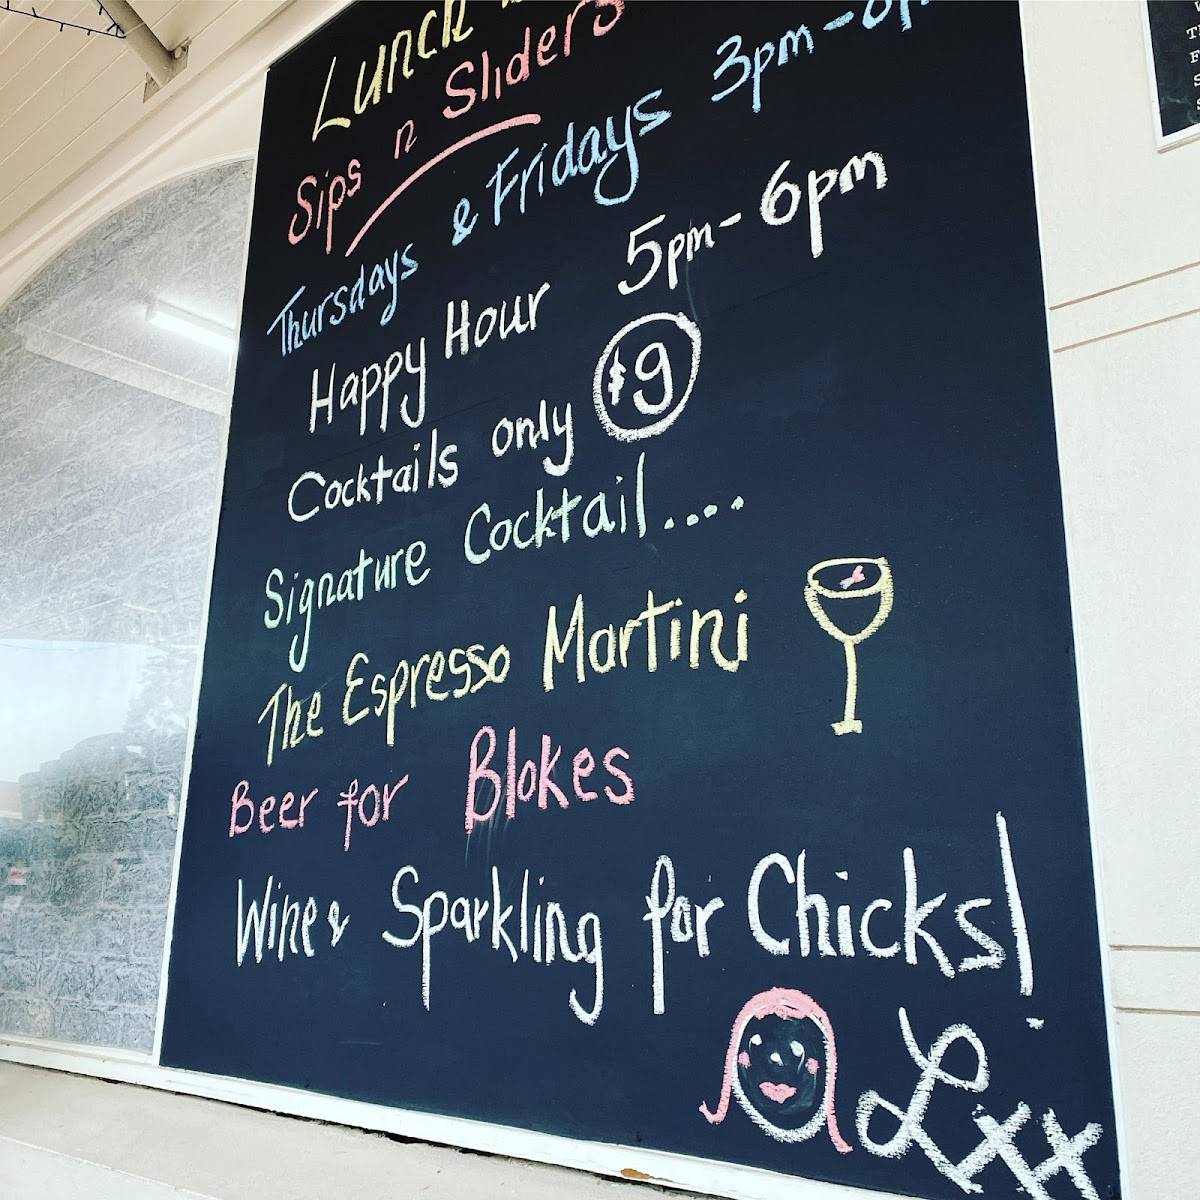 Lunch
Sips n Sliders
Thursdays & Fridays 3pm-6
Happy Hour 5pm-6pm
Cocktails only $9
Signature Cocktail....
The Espresso Martini
Beer for Blokes
Wine & Sparkling for Chicks!